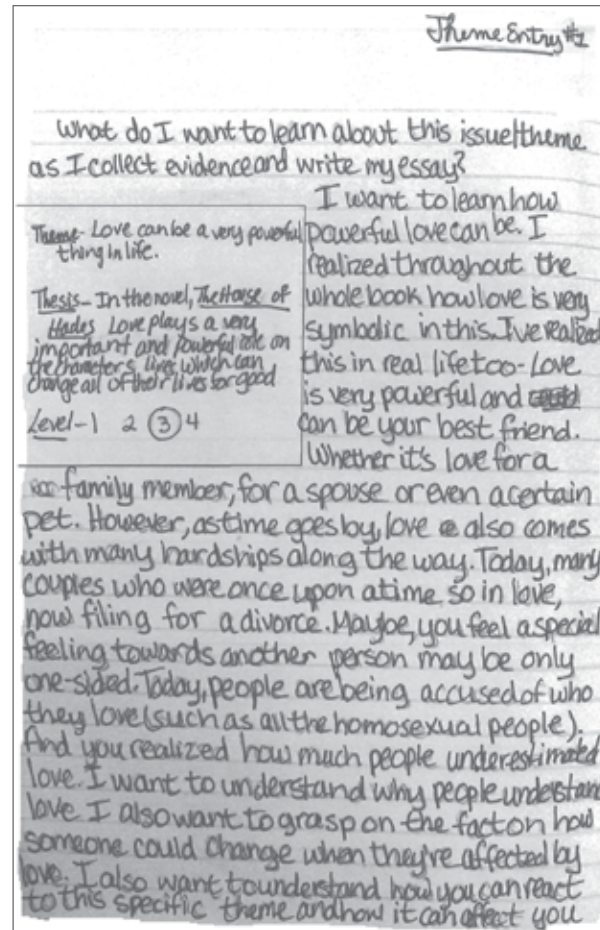 Theme Entry #1
What do I want to learn about this issue/theme
as I collect evidence and write my essay?
Theme- Love can be a very powerful
thing in life.
Thesis- In the novel, The House of
Hades Love plays a very
important and powerful role on
the character's lives which can
change all of their lives for good
Level-1 2 3 4
I want to learn how
powerful love can be. I
realized throughout the
whole book how love is very
symbolic in this. I've realized
this in real life too- Love
is very powerful and
can be your best friend.
Whether it's love for a
family member, for a spouse or even a certain
pet. However, as time goes by, love also comes
with many hardships along the way. Today, many
couples who were once upon a time so in love,
now filing for a divorce. Maybe, you feel a special
feeling towards another person may be only
one-sided. Today, people are being accused of who
they love (such as all the homosexual people).
And you realized how much people underestimated
love. I want to understand why people understand
love. I also want to grasp on the fact on how
someone could change when they're affected by
love. I also want to understand how you can react
to this specific theme and how it can affect you